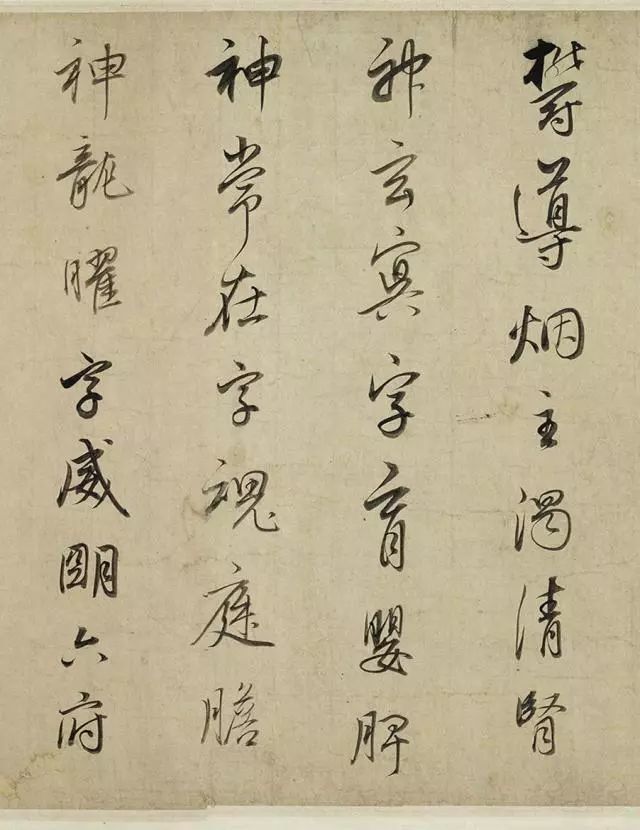 欝導烟主濁清腎
神玄冥字育嬰脾
神常在字魂庭膽
神龍曜字威朙六府